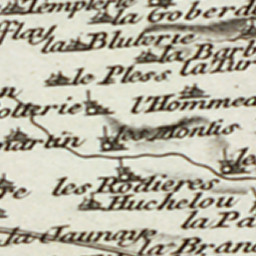 Templerie
la Goberd
fflay
la Bluterie
la Barb
le Pless
la Tur
otterie
l'Hommea
martin
les Montis
les
les Rodieres
Huchelou
la Pa
la Jaunaye
la Bran